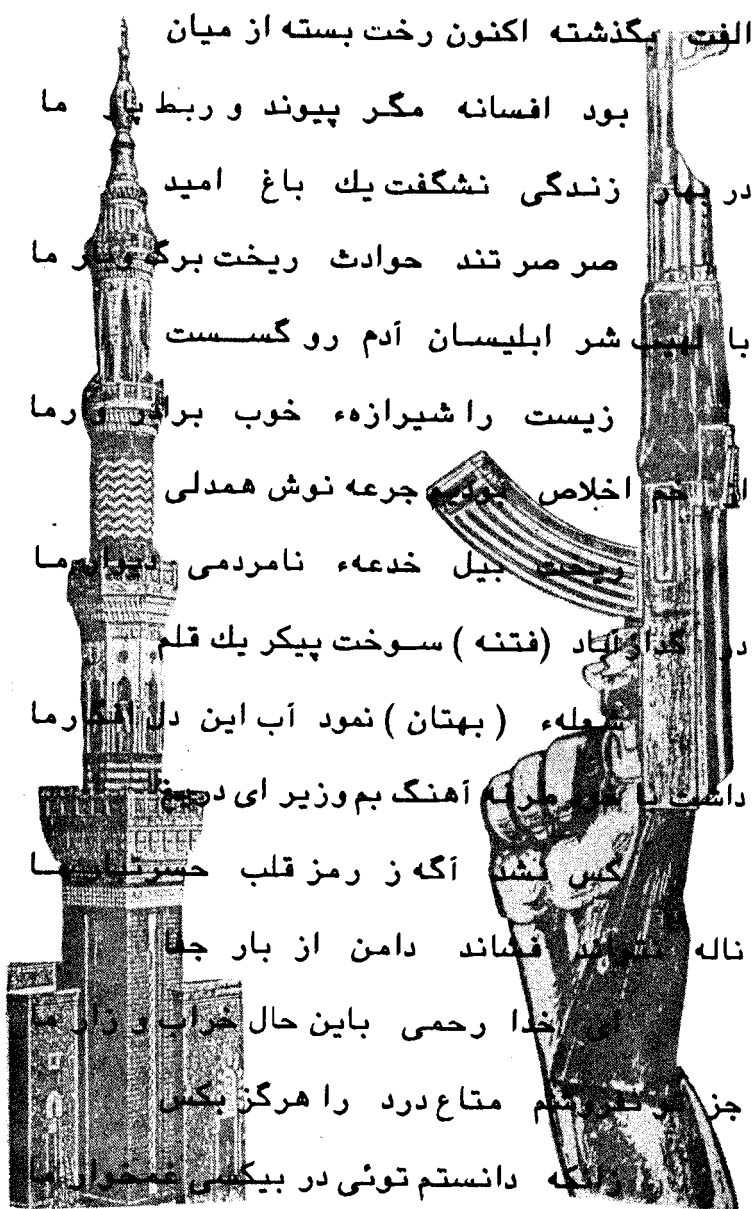 الفت بگذشته اکنون رخت بسته از میان
بود افسانه مگر پیوند و ربط پار ما
در بهار زندگی نشگفت یك باغ امید
صر صر تند حوادث ریخت برگ وبار ما
با لهیب شر ابلیسان آدم رو گسست
زیست را شیرازهء خوب برادر وارما
از خم اخلاص بودیم جرعه نوش همدلی
ریخت بیل خدعهء نامردمی دیوار ما
در گدازآباد (فتنه) سوخت پیکر یك قلم
شعلهء (بهتان) نمود آب این دل افگارما
داشت با خود هرنه آهنگ بم وزیر ای دریغ
کس نشد آگه ز رمز قلب حسرتبار ما
ناله نتواند فشاند دامن از بار جفا
ای خدا رحمی باین حال خراب و زار ما
جز تو نفروشم متاع درد را هرگز بکس
زانکه دانستم توئی در بیکسی غمخوار ما